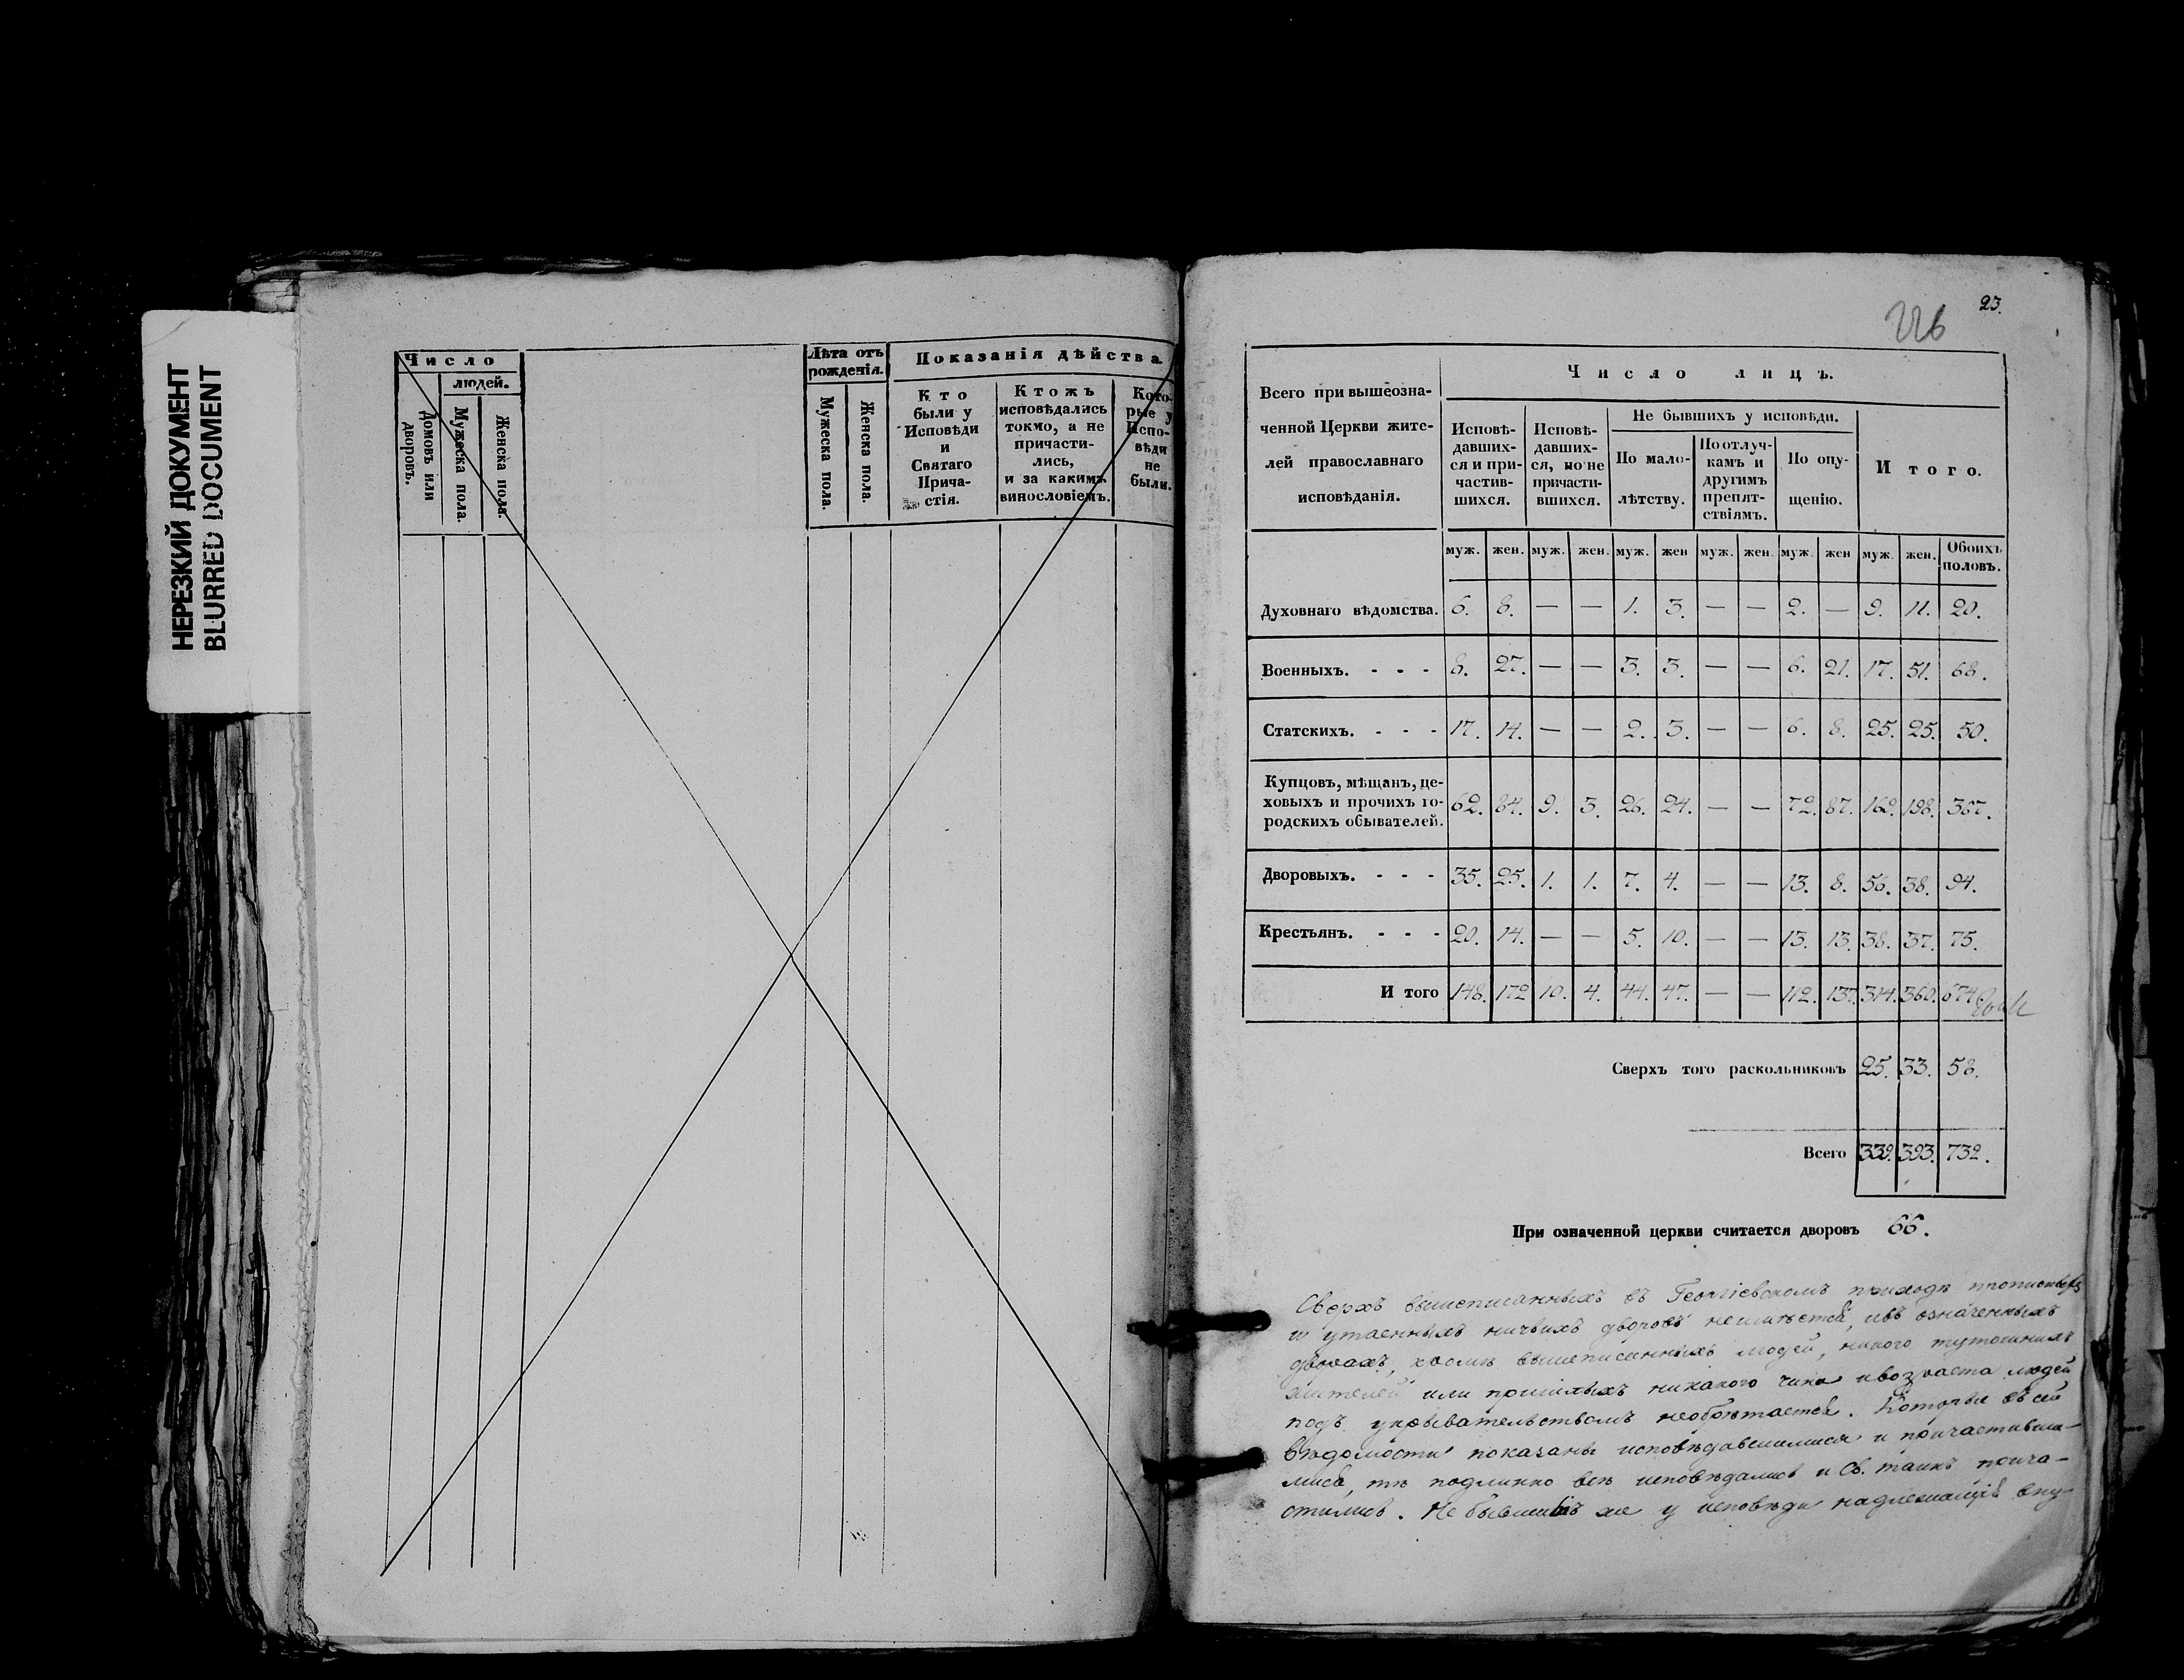 НЕРЕЗКИЙ ДОКУМЕНТ
BLURRED DOCUMENT
Число
людей.
Домовъ или дворовъ.
Мужеска пола.
Женска пола.
Лѣта отъ
рожденія.
Мужеска пола.
Женска пола.
Показанія дѣйства
Кто
были у
Исповѣди
и
Святаго
Прича-
стія.
Ктожъ
исповѣдались
токмо, а не
причасти-
лись,
и за какимъ
винословіемъ.
Кото-
рые у
Испо-
вѣди
не
были.
23.
226
Всего при вышеозна-
ченной Церкви жите-
лей православнаго
исповѣданія.
Число лицъ.
Исповѣ-
давших-
ся и при-
частив-
шихся.
Исповѣ-
давших-
ся, но не
причасти-
вшихся.
Не бывшихъ у исповѣди.
По мало-
лѣтству.
По отлуч-
камъ и
другимъ
препят-
ствіямъ.
По опу-
щенію.
Итого.
муж. жен. муж. жен. муж. жен муж. жен. муж. жен муж. жен. Обоихъ половъ.
Духовнаго вѣдомства. 6. 8. — — 1. 3. — — 2. — 9. 11. 20.
Военныхъ. - - - 8. 27. — — 3. 3. — — 6. 21. 17. 51. 68.
Статскихъ. - - - 17. 14. — — 2. 3. — — 6. 8. 25. 25. 50.
Купцовъ, мѣщанъ, це-
ховыхъ и прочихъ го-
родскихъ обывателей. 62. 84. 9. 3. 26. 24. — — 72. 87. 169. 198. 367.
Дворовыхъ. - - - 35. 25. 1. 1. 7. 4. — — 13. 8. 56. 38. 94.
Крестьянъ. - - - 20. 14. — — 5. 10. — — 13. 13. 38. 37. 75.
И того 148. 172 10. 4. 44. 47. — — 112. 137. 314. 360. 674.
Сверхъ того раскольниковъ 25. 33. 58.
Всего 339. 393. 732.
При означенной церкви считается дворовъ 66.
Сверхъ вышеписанныхъ въ Георгіевскомъ приходѣ прописныхъ
и утаенныхъ ничьихъ дворовъ неимѣется, ивъ означенныхъ
дворахъ, кромѣ вышеписанныхъ людей, никого тутошнихъ
жителей или пришлыхъ никакого чина ивозраста людей
подъ укрывательствомъ необрѣтается. Которые въ сей
вѣдомости показаны исповѣдавшимися и причастивши-
мися, тѣ подлинно всѣ исповѣдались и Св. таинъ прича-
стились. Не бывшихъ же у исповѣди надлежащія вну-